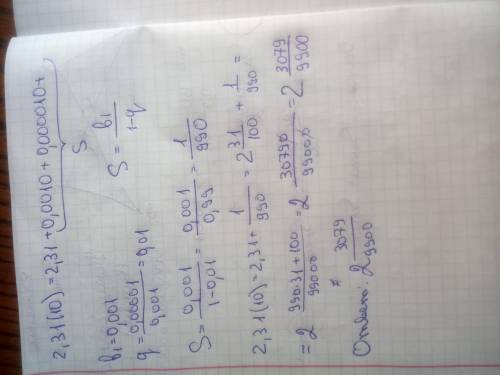 2,31(10) = 2,31 + 0,0010 + 0,000010 +
S
b₁ = 0,001
S = b₁/(1-q)
q = 0,00001/0,001 = 0,01
S = 0,001/(1-0,01) = 0,001/0,99 = 1/990
2,31(10) = 2,31 + 1/990 = 2 31/100 + 1/990 =
= 2 (990·31+100)/99000 = 2 30790/99000 = 2 3079/9900
Ответ: 2 3079/9900